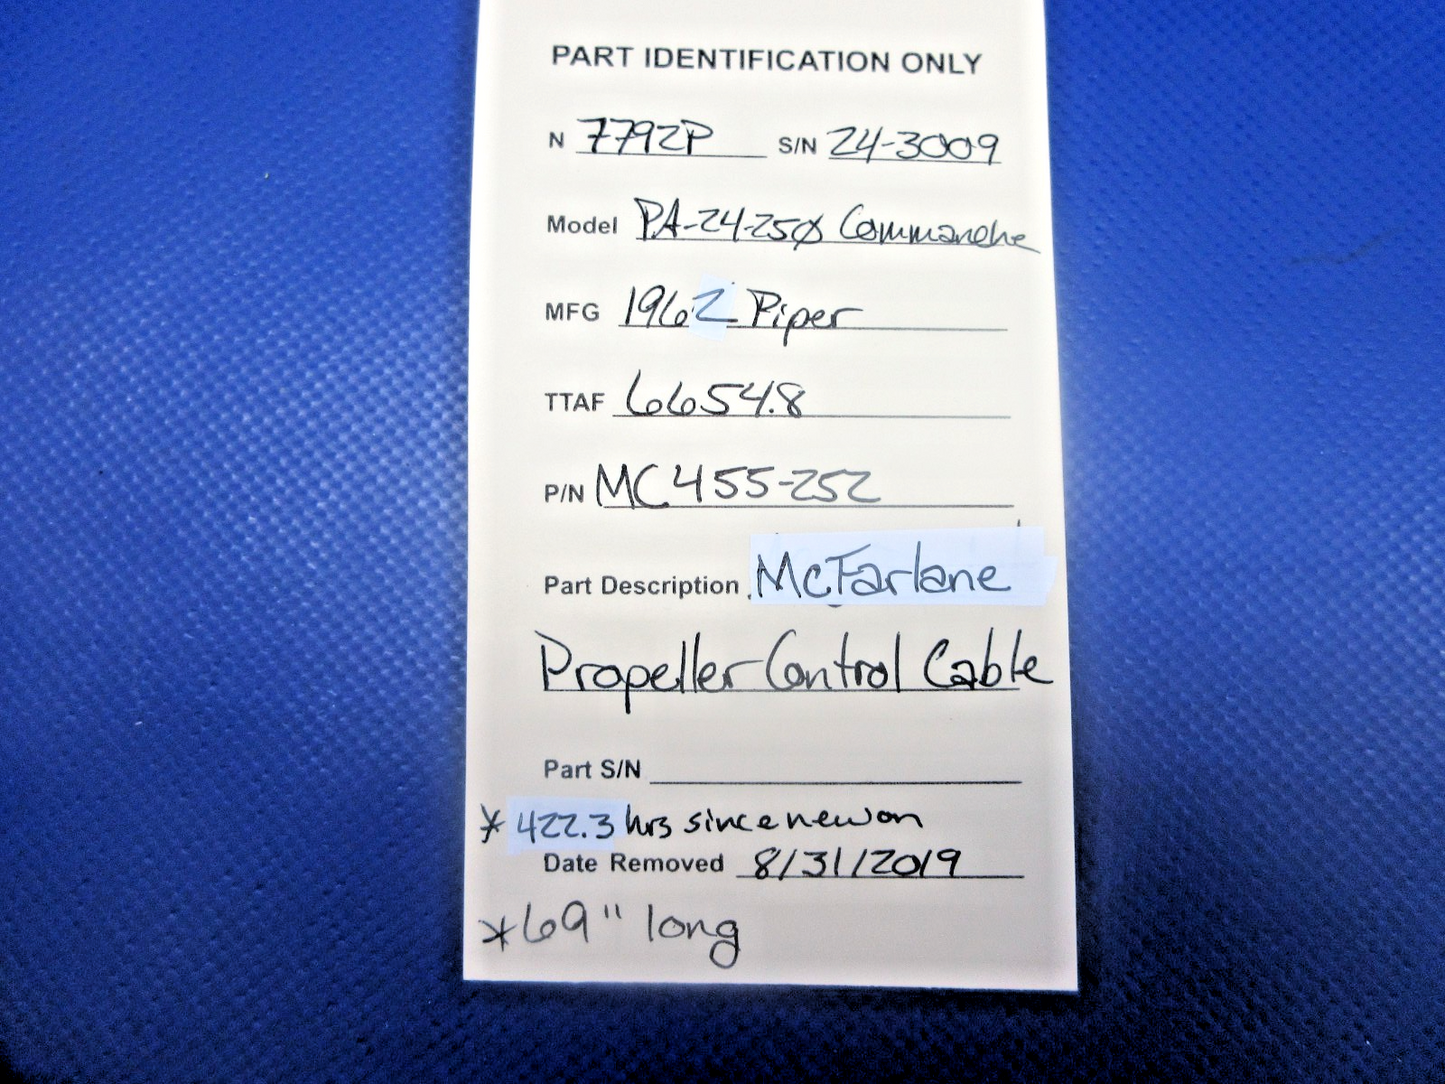 PART IDENTIFICATION ONLY
N 7792P S/N 24-3009
Model PA-24-250 Commanche
MFG 1962 Piper
TTAF 6654.8
P/N MC455-252
Part Description McFarlane
Propeller Control Cable
Part S/N
* 422.3 hrs since new on
Date Removed 8/31/2019
* 69" long